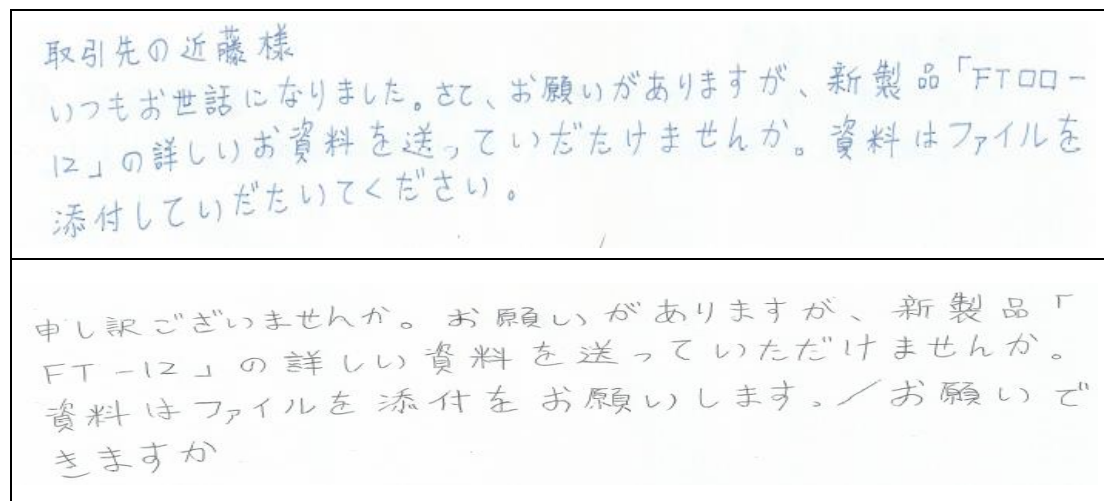 取引先の近藤様
いつもお世話になりました。さて、お願いがありますが、新製品「FTロロー
12」の詳しいお資料を送っていだたけませんか。資料はファイルを
添付していだたいてください。
申し訳ございませんか。お願いがありますが、新製品「
FT-12」の詳しい資料を送っていただけませんか。
資料はファイルを添付をお願いします。／お願いで
きますか